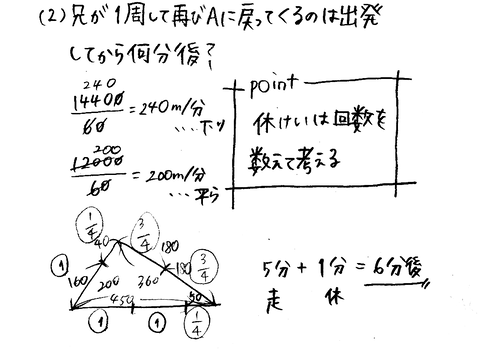 (2) 兄が1周して再びAに戻ってくるのは出発
してから何分後?
240
14400/60 = 240m/分
…下り
200
12000/60 = 200m/分
…平ら
point
休けいは回数を
数えて考える
1/4 3/4
40 180
1 160 200 360 180 3/4
450 90
1 1 1/4
5分 + 1分 = 6分後
走 休